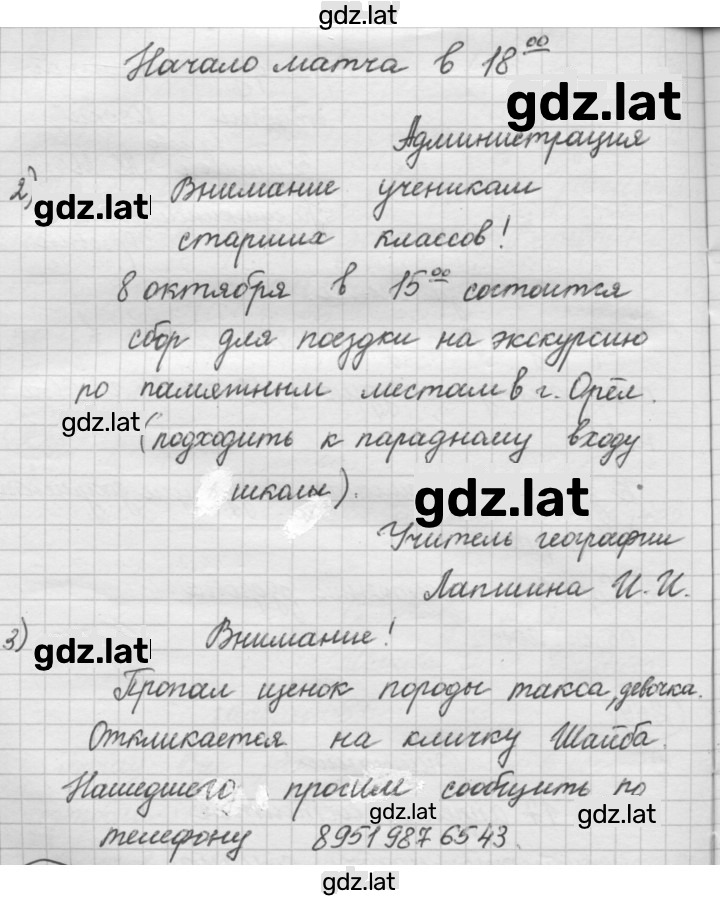 gdz.lat
Начало матча в 18⁰⁰
gdz.lat
Администрация
2) gdz.lat Внимание ученикам
старших классов!
8 октября в 15⁰⁰ состоится
сбор для поездки на экскурсию
по памятным местам в г. Орёл.
gdz.lat
(подходить к парадному входу
школы).
gdz.lat
Учитель географии
Лапшина И. И.
3) gdz.lat Внимание!
Пропал щенок породы такса, девочка.
Откликается на кличку Шайба.
Нашедшего просим сообщить по
gdz.lat gdz.lat
телефону 89519876543.
gdz.lat